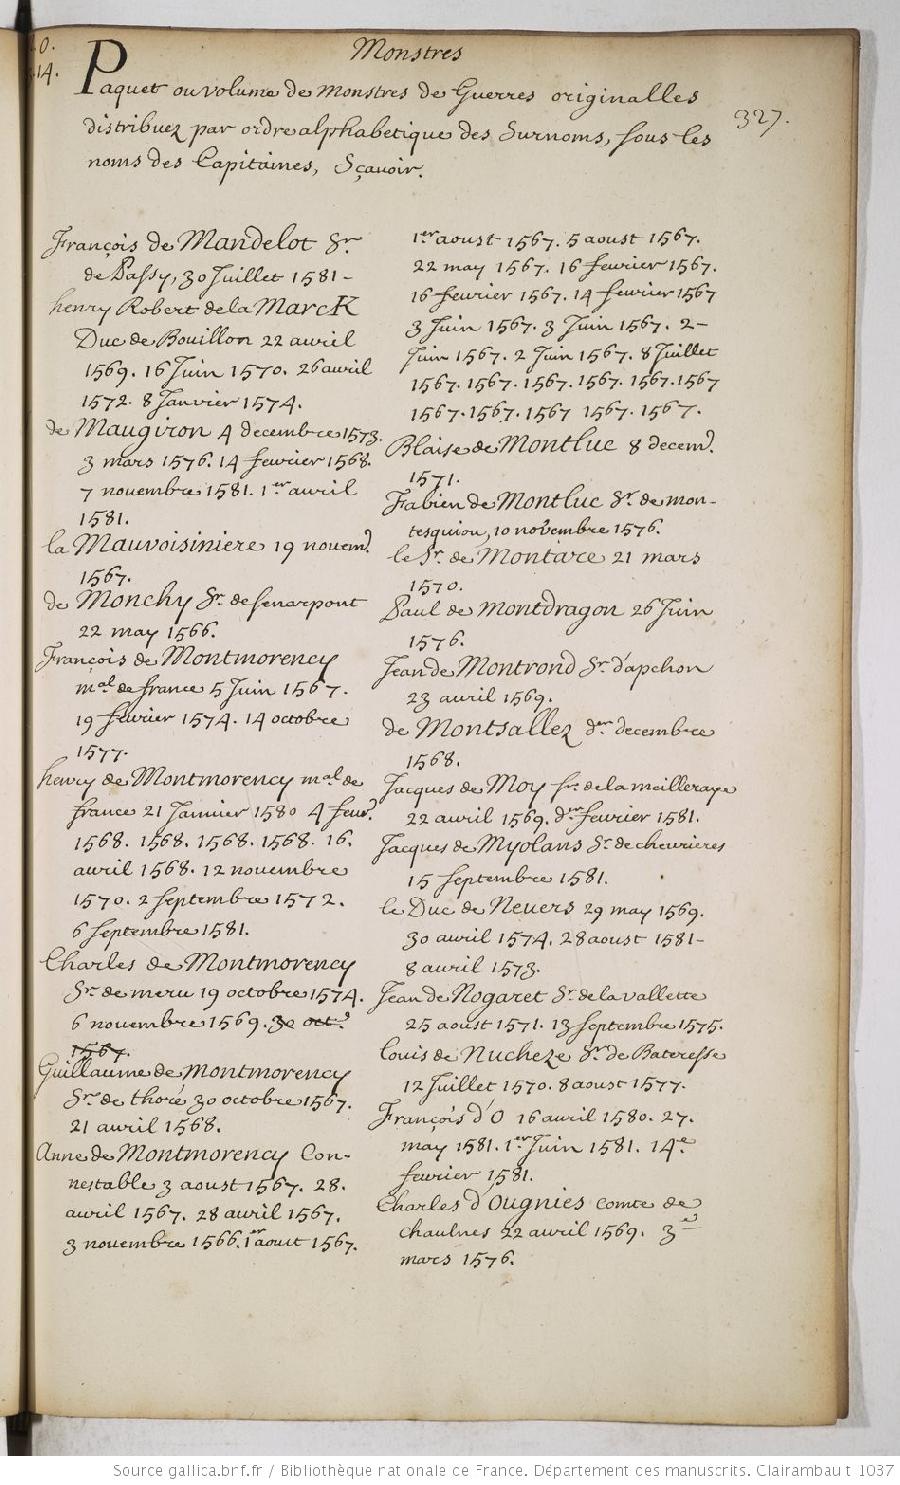 Monstres
Paquet ou volume de monstres de Guerres originalles
distribuez par ordre alphabetique des Surnoms, sous les
noms des Capitaines, Sçavoir.
327.
.0.
.14.
François de Mandelot Sr.
de Passy, 30 Juillet 1581-
henry Robert de la MarcK
Duc de Bouillon 22 avril
1569. 16 Juin 1570. 26 avril
1572. 8 Janvier 1574.
de Maugiron 4 decembre 1573.
3 mars 1576. 14 fevrier 1568.
7 novembre 1581. 1er avril
1581.
la Mauvoisiniere 19 novem).
1567.
de Monchy Sr. de senarpont
22 may 1566.
François de Montmorency
mal. de france 5 Juin 1567.
19 fevrier 1574. 14 octobre
1577.
henry de Montmorency mal. de
france 21 Janvier 1580 4 feur).
1568. 1568. 1568. 1568. 16.
avril 1568. 12 novembre
1570. 2 Septembre 1572.
6 Septembre 1581.
Charles de Montmorency
Sr. de meru 19 octobre 1574.
6 novembre 1569. 30 oct.
1567.
Guillaume de Montmorency
Sr. de thoré 30 octobre 1567.
21 avril 1568.
Anne de Montmorency Con-
nestable 3 aoust 1567. 28.
avril 1567. 28 avril 1567.
3 novembre 1566. 1er aoust 1567.
1er aoust 1567. 5 aoust 1567.
22 may 1567. 16 fevrier 1567.
16 fevrier 1567. 14 fevrier 1567
3 Juin 1567. 3 Juin 1567. 2-
Juin 1567. 2 Juin 1567. 8 Juillet
1567. 1567. 1567. 1567. 1567. 1567
1567. 1567. 1567 1567. 1567.
Blaise de Montluc 8 decem).
1571.
Fabien de Montluc Sr. de mon-
tesquiou, 10 novembre 1576.
le Sr. de Montare 21 mars
1570.
Paul de Montdragon 26 Juin
1576.
Jean de Montrond Sr. d'apchon
23 avril 1569.
de Montsallez der. decembre
1568.
Jacques de Moy Sr. de la meilleraye
22 avril 1569. der. fevrier 1581.
Jacques de Myolans Sr. de chevrieres
15 Septembre 1581.
le Duc de Nevers 29 may 1569.
30 avril 1574. 28 aoust 1581-
8 avril 1573.
Jean de Nogaret Sr. de la vallette
25 aoust 1571. 13 Septembre 1575.
Louis de Nucheze Sr. de Bateresse
12 Juillet 1570. 8 aoust 1577.
François d'O 16 avril 1580. 27.
may 1581. 1er Juin 1581. 14e
fevrier 1581.
Charles d'Ougnies comte de
chaulnes 22 avril 1569. 3e
mars 1576.
Source gallica.bnf.fr / Bibliothèque nationale de France. Département des manuscrits. Clairambault 1037